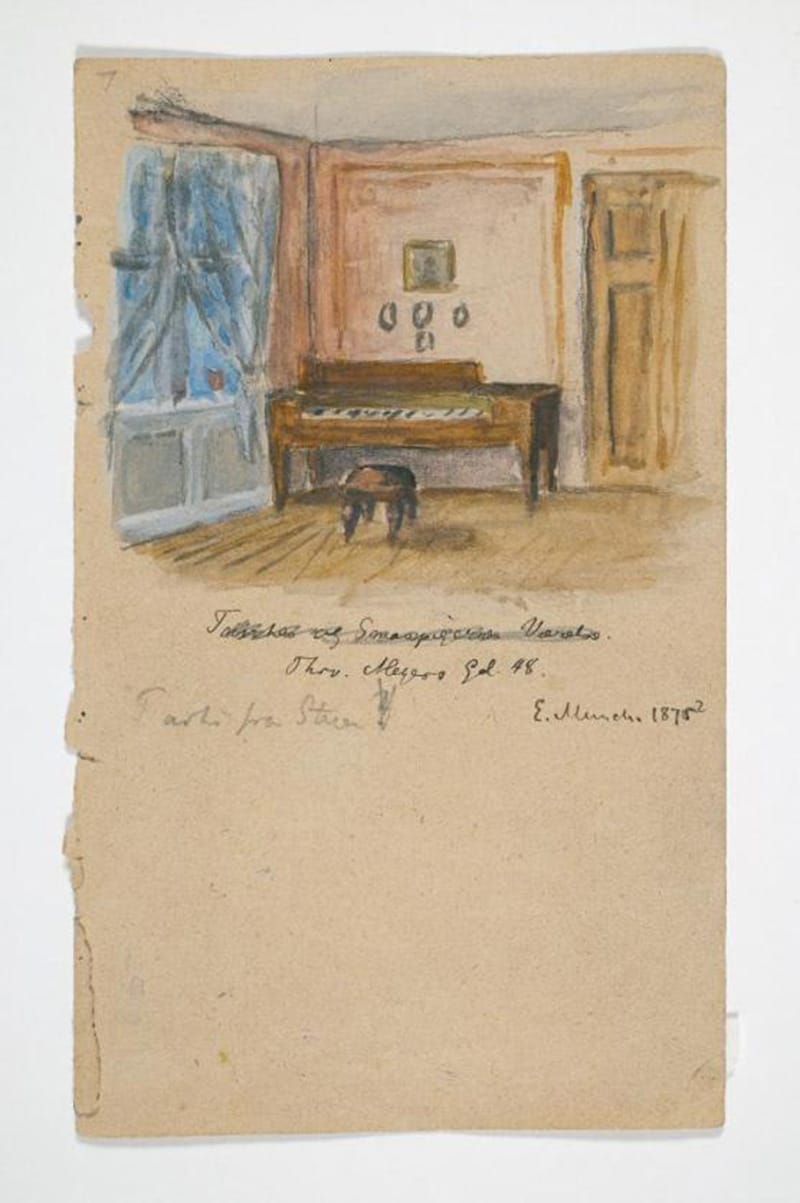 Tantes og Smaapigernes Værelse.
Thorv. Meyers Gd. 48.
Parti fra Stuen
E. Munch. 1878²